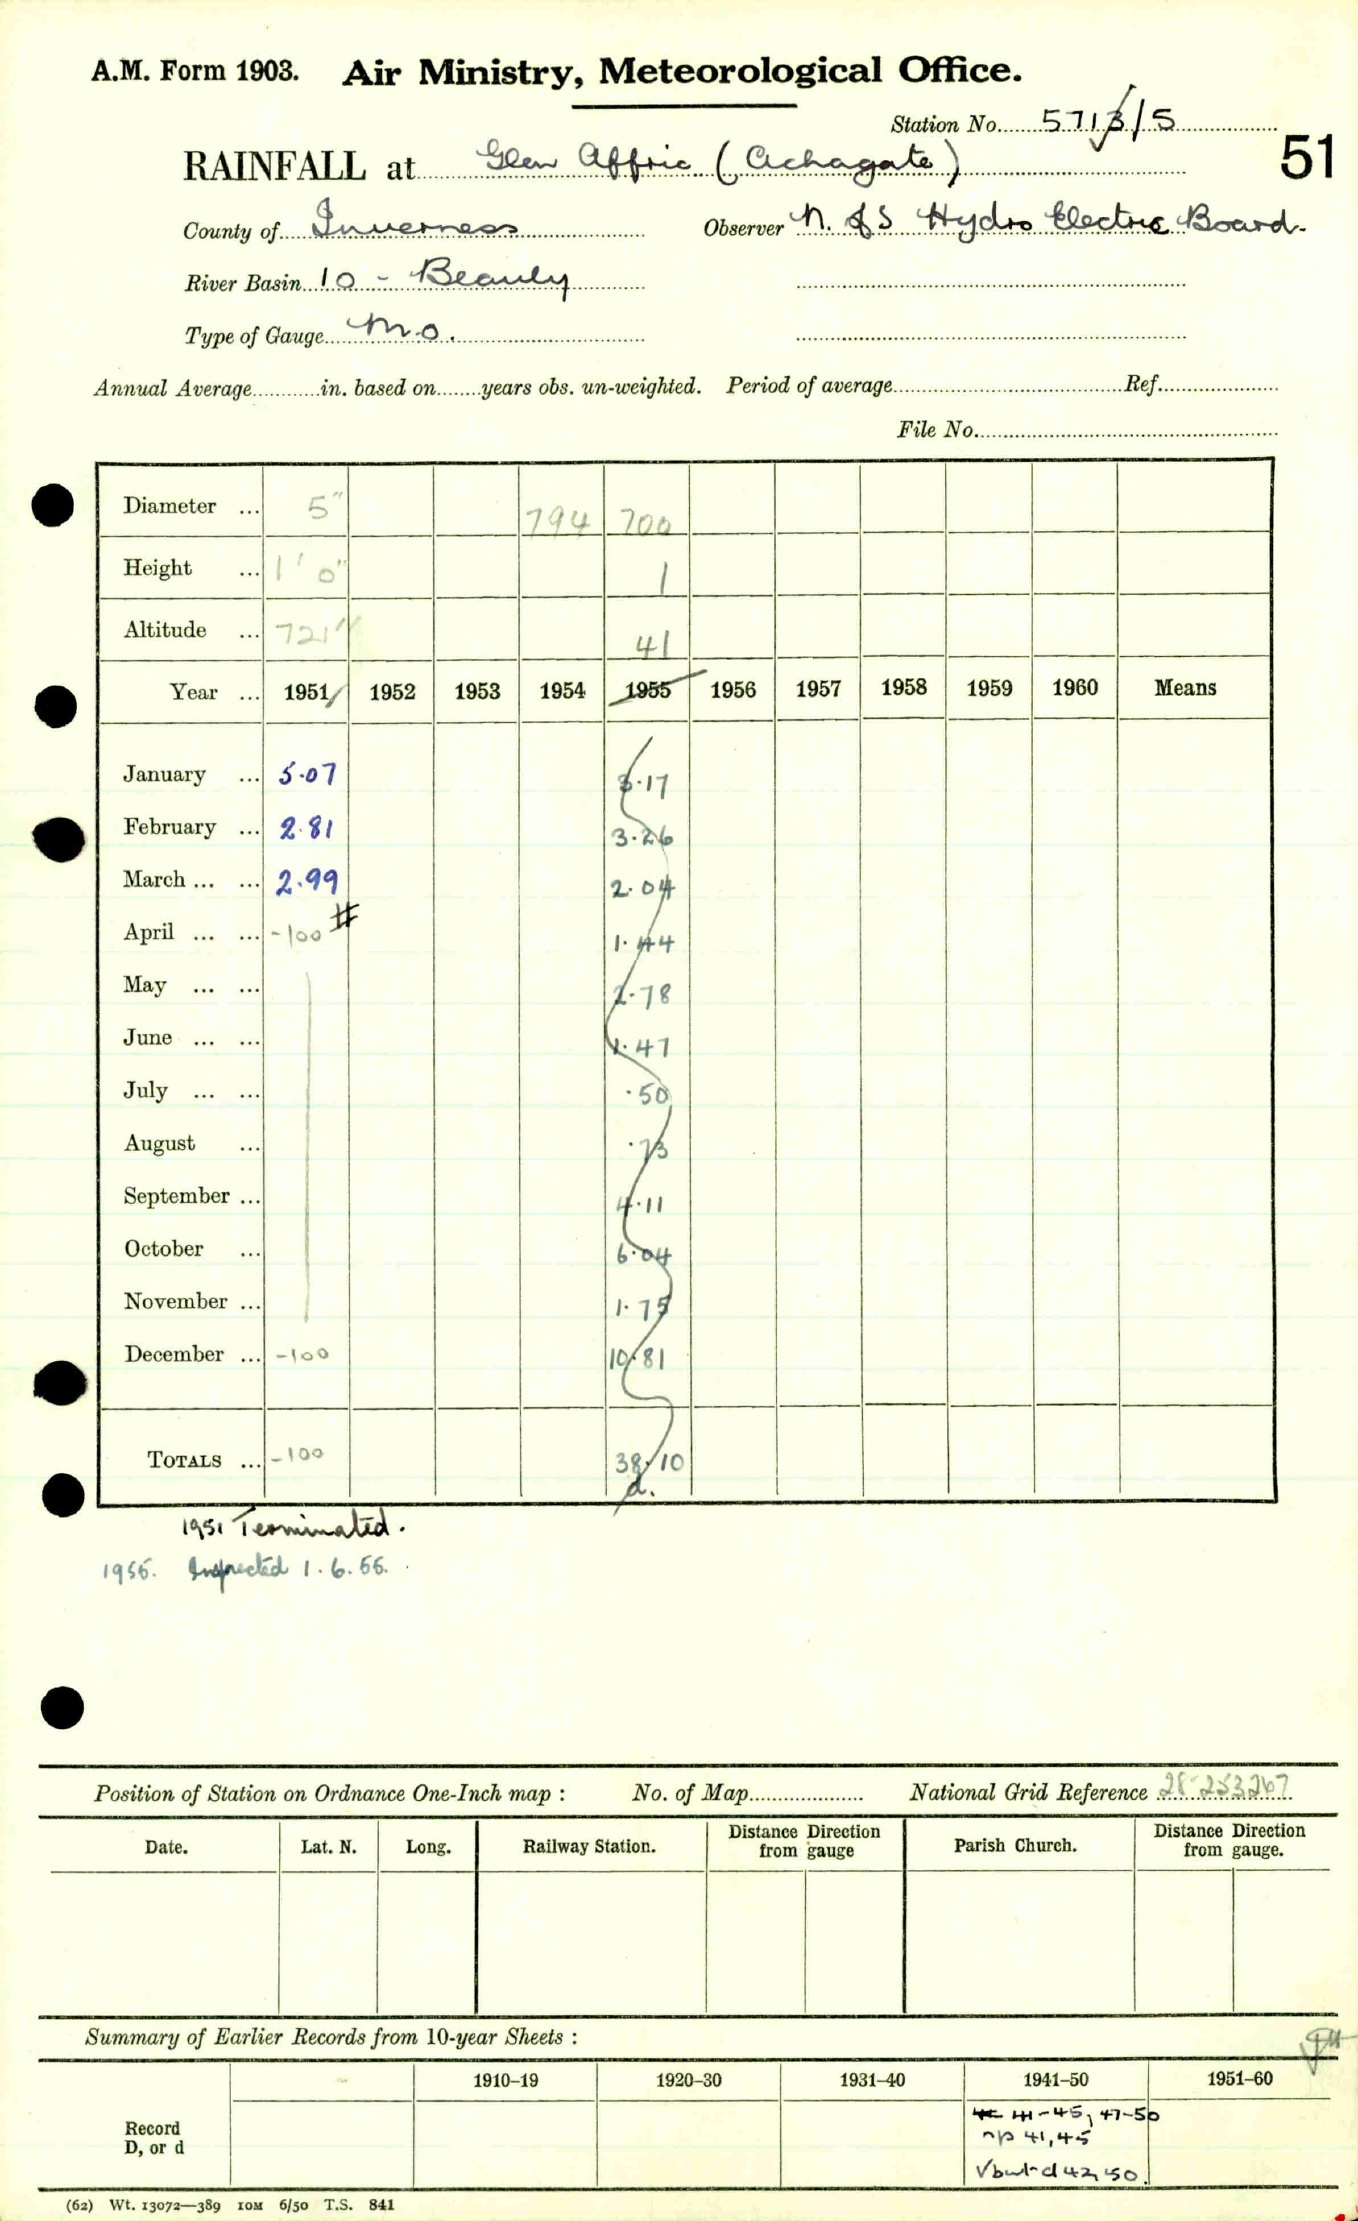 A.M. Form 1903. Air Ministry, Meteorological Office.
Station No. 5713/5
RAINFALL at Glen Affric (Achagate) 51
County of Inverness Observer N. of S Hydro Electric Board.
River Basin 10 - Beauly
Type of Gauge M.O.
Annual Average in. based on years obs. un-weighted. Period of average Ref.
File No.
Diameter ... 5" 794 700
Height ... 1' 0" 1
Altitude ... 721' 41
Year ... 1951 1952 1953 1954 1955 1956 1957 1958 1959 1960 Means
January ... 5.07 3.17
February ... 2.81 3.26
March ... ... 2.99 2.04
April ... ... -100 # 1.44
May ... ... 2.78
June ... ... 1.47
July ... ... .50
August ... .73
September ... 4.11
October ... 6.04
November ... 1.75
December ... -100 10.81
TOTALS ... -100 38.10
d.
1951 Terminated.
1955. Inspected 1.6.55.
Position of Station on Ordnance One-Inch map : No. of Map National Grid Reference 28-253267
Date. Lat. N. Long. Railway Station. Distance from Direction gauge Parish Church. Distance from Direction gauge.
Summary of Earlier Records from 10-year Sheets :
1910–19 1920–30 1931–40 1941–50 1951–60
Record D, or d
41-45, 47-50
np 41, 45
V but d 42, 50.
(62) Wt. 13072—389 10M 6/50 T.S. 841